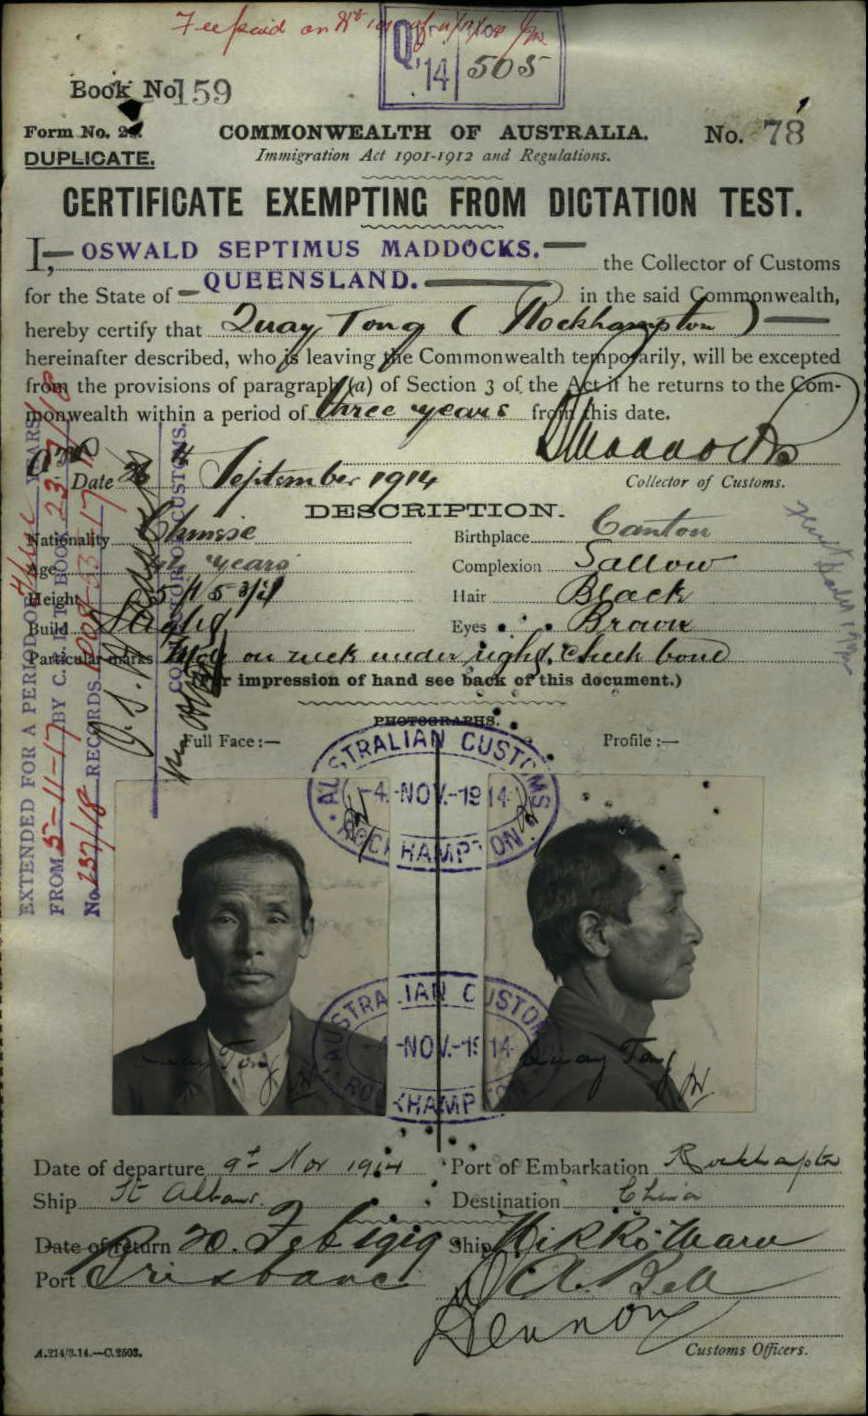 Fee paid on
Q
'14 505
Book No 159
Form No. 21.
COMMONWEALTH OF AUSTRALIA.
No. 78
DUPLICATE.
Immigration Act 1901-1912 and Regulations.
CERTIFICATE EXEMPTING FROM DICTATION TEST.
I, OSWALD SEPTIMUS MADDOCKS. the Collector of Customs
for the State of QUEENSLAND. in the said Commonwealth,
hereby certify that Quay Tong (Rockhampton)
hereinafter described, who is leaving the Commonwealth temporarily, will be excepted
from the provisions of paragraph (a) of Section 3 of the Act if he returns to the Com-
monwealth within a period of three years from this date.
OSMaddocks
Date September 1914
Collector of Customs.
DESCRIPTION.
Nationality Chinese Birthplace Canton
Age years Complexion Sallow
Height 5 ft 5 3/4 Hair Black
Build Slight Eyes Brown
Particular marks Mole on neck under right cheek bone
(For impression of hand see back of this document.)
PHOTOGRAPHS.
Full Face:— Profile:—
EXTENDED FOR A PERIOD OF three YEARS
FROM 5-11-17 BY C. & E. T. BOOK
No 237/18 RECORDS
COLLECTOR OF CUSTOMS.
AUSTRALIAN CUSTOMS
-4.-NOV.-1914
ROCKHAMPTON
AUSTRALIAN CUSTOMS
-4-NOV.-1914
ROCKHAMPTON
Quay Tong
Quay Tong
Date of departure 9th Nov 1914 Port of Embarkation Rockhampton
Ship St Albans. Destination China
Date of return 20. Feb 1919 Ship Nikko Maru
Port Brisbane
Bell
Customs Officers.
A.214/3.14.—C.2503.